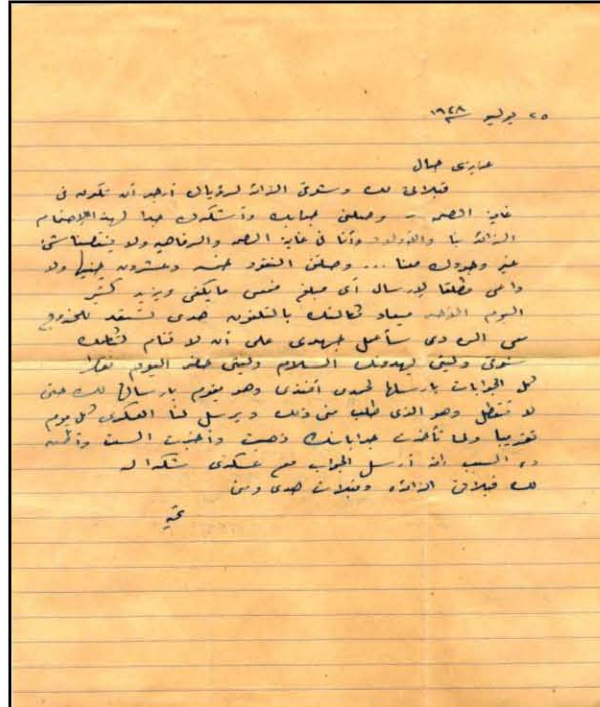 ٢٥ يوليو ١٩٤٨
عزيزى جمال
قبلاتى لك وشوقى الزائد لرؤياك أرجو أن تكون فى
غاية الصحة وصلنى جوابك وأشكرك جدا لهذا الاهتمام
الزائد بنا والأولاد وأنا فى غاية الصحة والرفاهية ولا ينقصنا شئ
غير وجودك معنا ... وصلتنى النقود خمسة وعشرون جنيها ولا
داعى مطلقا لإرسال أى مبلغ فمعى مايكفى ويزيد كثير
اليوم الأحد ميعاد مكالمتك بالتلفون هدى تستعد للخروج
معى المرة دى سأعمل جهدى على أن لا تنام لتكلمك
شوقى يهدونك السلام حضر اليوم
كل الجوابات بارسلها لحمدى أفندى وهو يقوم بارسالها لك حتى
لا تتعطل وهو الذى طلب منى ذلك ويرسل لنا العسكرى كل يوم
تقريبا ولما تأخرت جواباتك
السبب أرسل الجواب مع عسكرى شكرا له
لك قبلاتى الزائدة وقبلات هدى ومنى
تحية